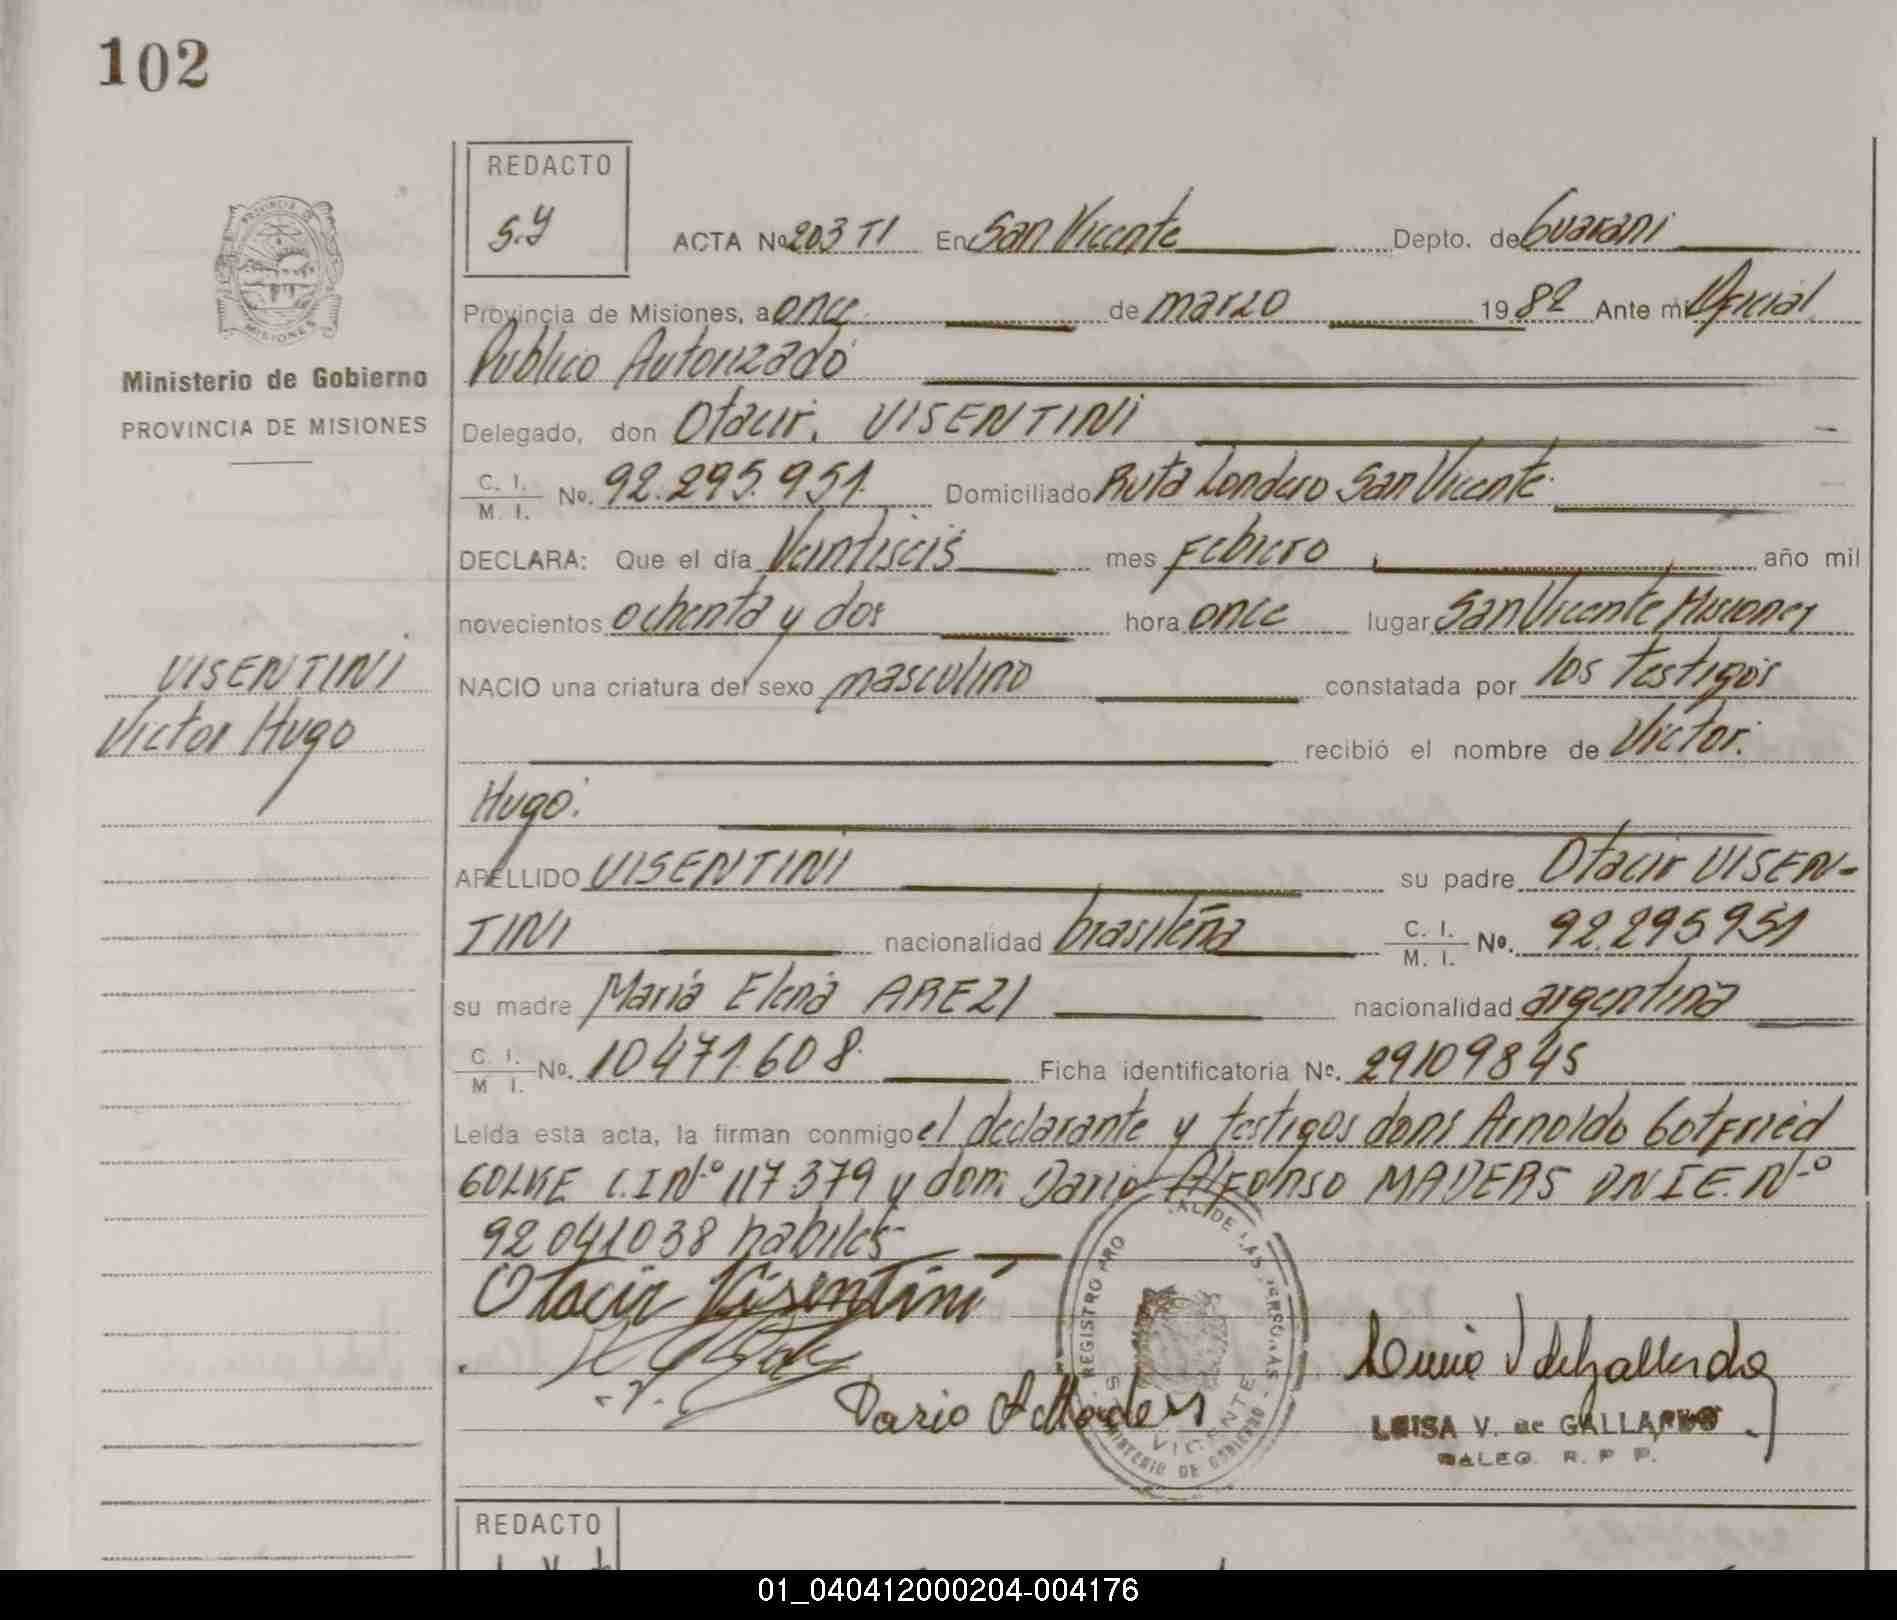 102
REDACTO
S.Y
ACTA No 203 TI En San Vicente Depto. de Guarani
Provincia de Misiones, a once de marzo 19 82 Ante mi Oficial
Publico Autorizado
Ministerio de Gobierno
PROVINCIA DE MISIONES
Delegado, don Otacir. VISENTINI
C. I. / M. I. No. 92.295.951. Domiciliado Ruta Londero San Vicente.
DECLARA: Que el día Veintiseis mes Febrero año mil
novecientos ochenta y dos hora once lugar San Vicente Misiones
VISENTINI
Victor Hugo
NACIO una criatura del sexo masculino constatada por los testigos
recibió el nombre de Victor.
Hugo.
APELLIDO VISENTINI su padre Otacir VISEN-
TINI nacionalidad brasileña C. I. / M. I. No. 92.295951
su madre María Elena AREZI nacionalidad argentina
C. I. / M I. No. 10471.608. Ficha identificatoria No. 29109845
Leída esta acta, la firman conmigo el declarante y testigos dons Arnoldo Gotfried
GOLKE C.I Nº 117.379 y don: Dario Alfonso MADERS DNIE. Nº
92041038 habiles
Otacir Visentini
Dario A Maders
REGISTRO PRO DE LAS PERSONAS
VICENTE
MINISTERIO DE GOBIERNO
LUISA V. de GALLARDO
DALEG. R. P P.
REDACTO
01_040412000204-004176